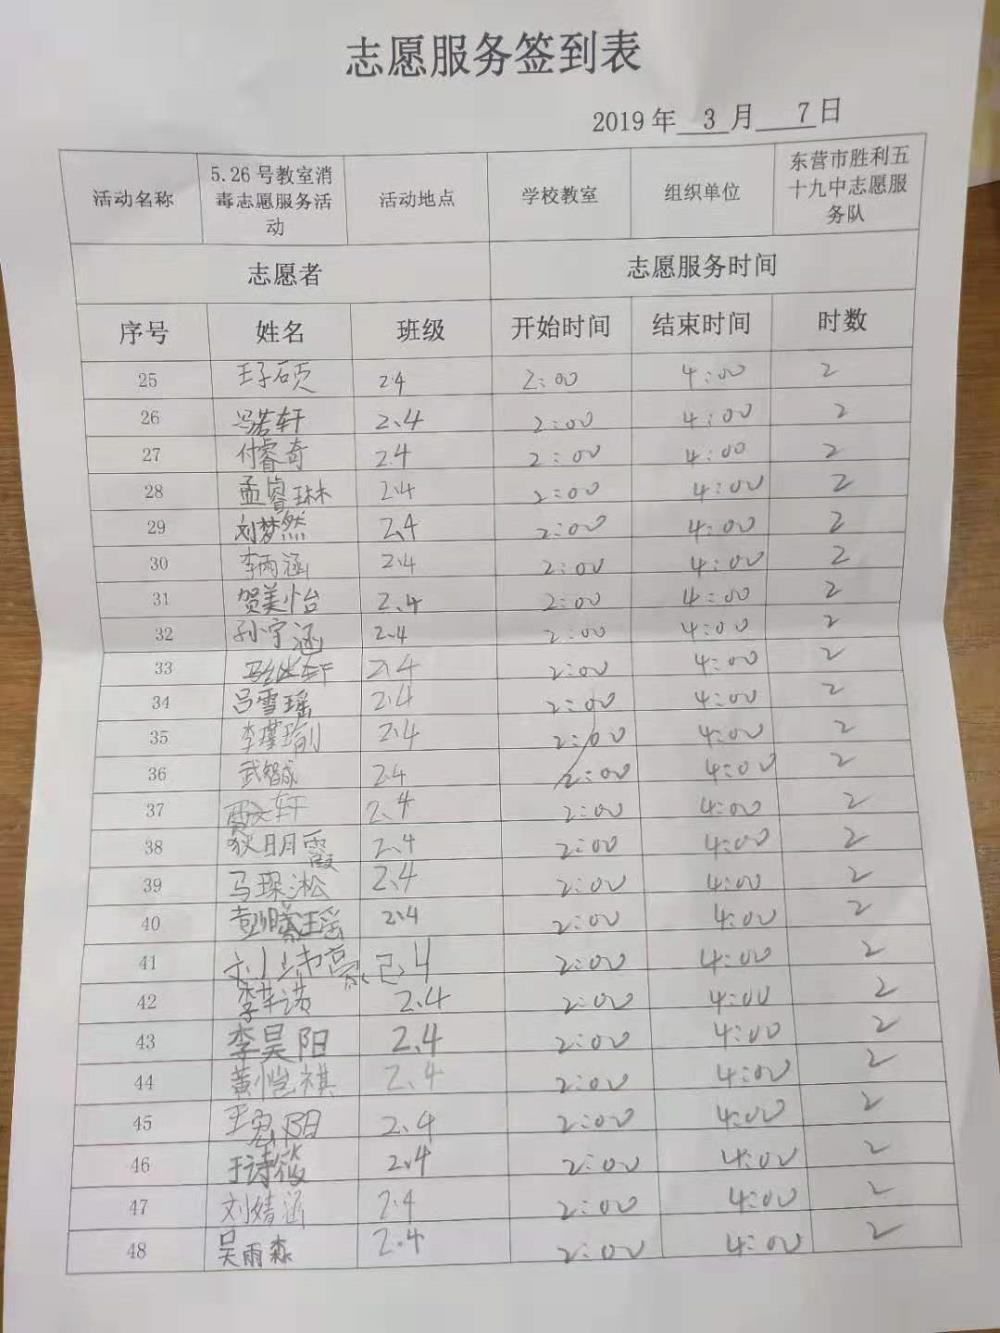 志愿服务签到表
2019 年 3 月 7 日
活动名称 5.26 号教室消毒志愿服务活动 活动地点 学校教室 组织单位 东营市胜利五十九中志愿服务队
志愿者 志愿服务时间
序号 姓名 班级 开始时间 结束时间 时数
25 王子硕 2.4 2:00 4:00 2
26 冯若轩 2.4 2:00 4:00 2
27 付睿奇 2.4 2:00 4:00 2
28 孟睿琳 2.4 2:00 4:00 2
29 刘梦然 2.4 2:00 4:00 2
30 李雨涵 2.4 2:00 4:00 2
31 贺美怡 2.4 2:00 4:00 2
32 孙宇涵 2.4 2:00 4:00 2
33 2.4 2:00 4:00 2
34 吕雪瑶 2.4 2:00 4:00 2
35 李瑾瑜 2.4 2:00 4:00 2
36 武智成 2.4 2:00 4:00 2
37 2.4 2:00 4:00 2
38 狄明霞 2.4 2:00 4:00 2
39 马琛淞 2.4 2:00 4:00 2
40 2.4 2:00 4:00 2
41 2.4 2:00 4:00 2
42 李诺 2.4 2:00 4:00 2
43 李昊阳 2.4 2:00 4:00 2
44 黄恺祺 2.4 2:00 4:00 2
45 2.4 2:00 4:00 2
46 于诗筱 2.4 2:00 4:00 2
47 刘婧涵 2.4 2:00 4:00 2
48 吴雨森 2.4 2:00 4:00 2